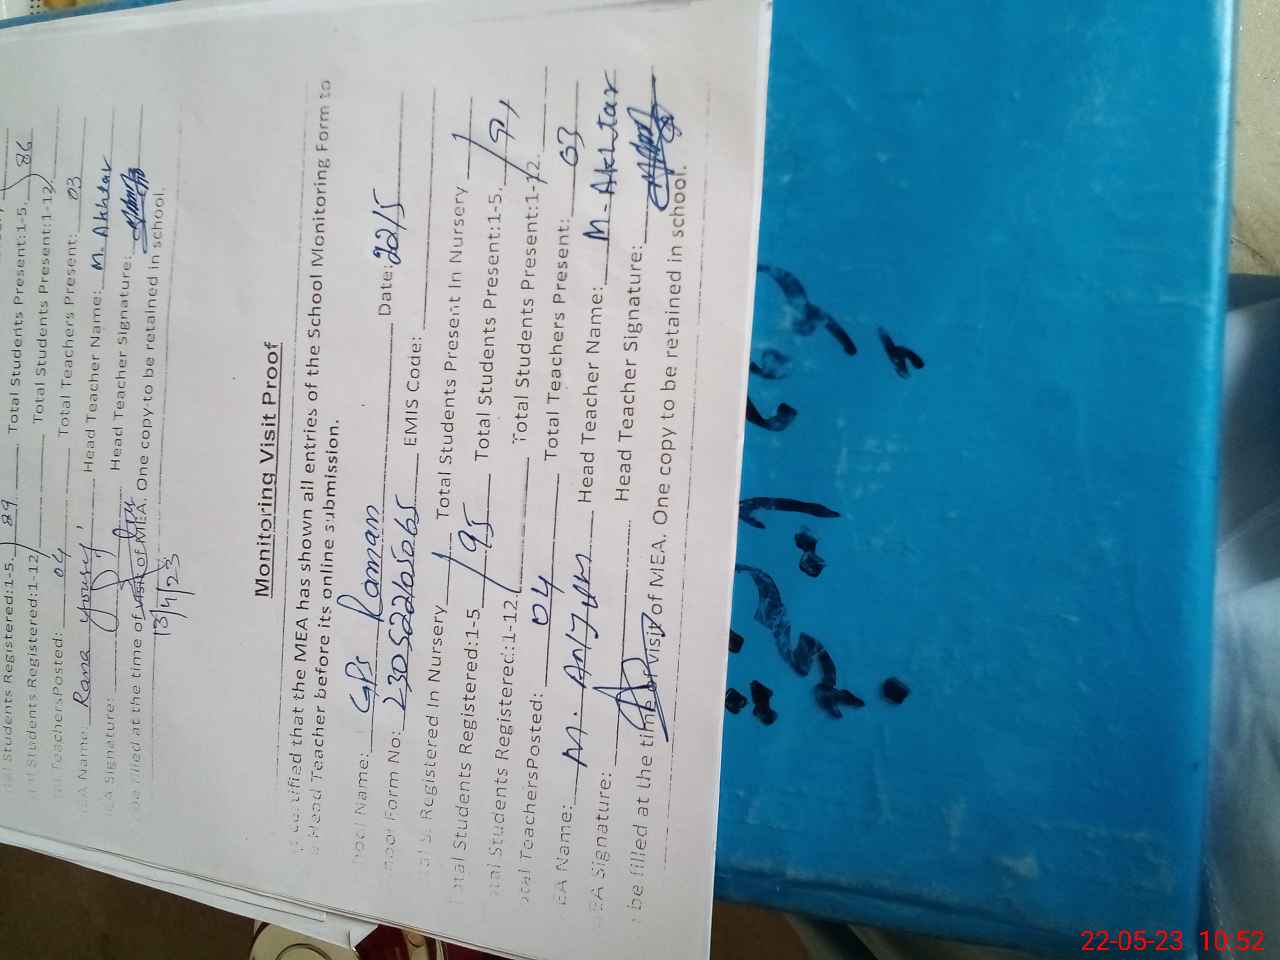 Total Students Present:1-5. 86
Students Registered:1-5. 89
Total Students Present:1-12
Students Registered:1-12
Total Teachers Present: 03
TeachersPosted: 04
Head Teacher Name: M. Akhtar
Name: Rana
Head Teacher Signature:
Signature:
filled at the time of visit of MEA. One copy to be retained in school.
13/4/23
Monitoring Visit Proof
certified that the MEA has shown all entries of the School Monitoring Form to
Head Teacher before its online submission.
Name: GPS Raman Date: 22/5
Form No: EMIS Code:
Registered In Nursery Total Students Present In Nursery
Students Registered:1-5 95 Total Students Present:1-5. 91
Students Registered:1-12. Total Students Present:1-12.
TeachersPosted: 04 Total Teachers Present: 03
EA Name: M. ANJUM Head Teacher Name: M. Akhtar
EA Signature: Head Teacher Signature:
be filled at the time of visit of MEA. One copy to be retained in school.
22-05-23 10:52